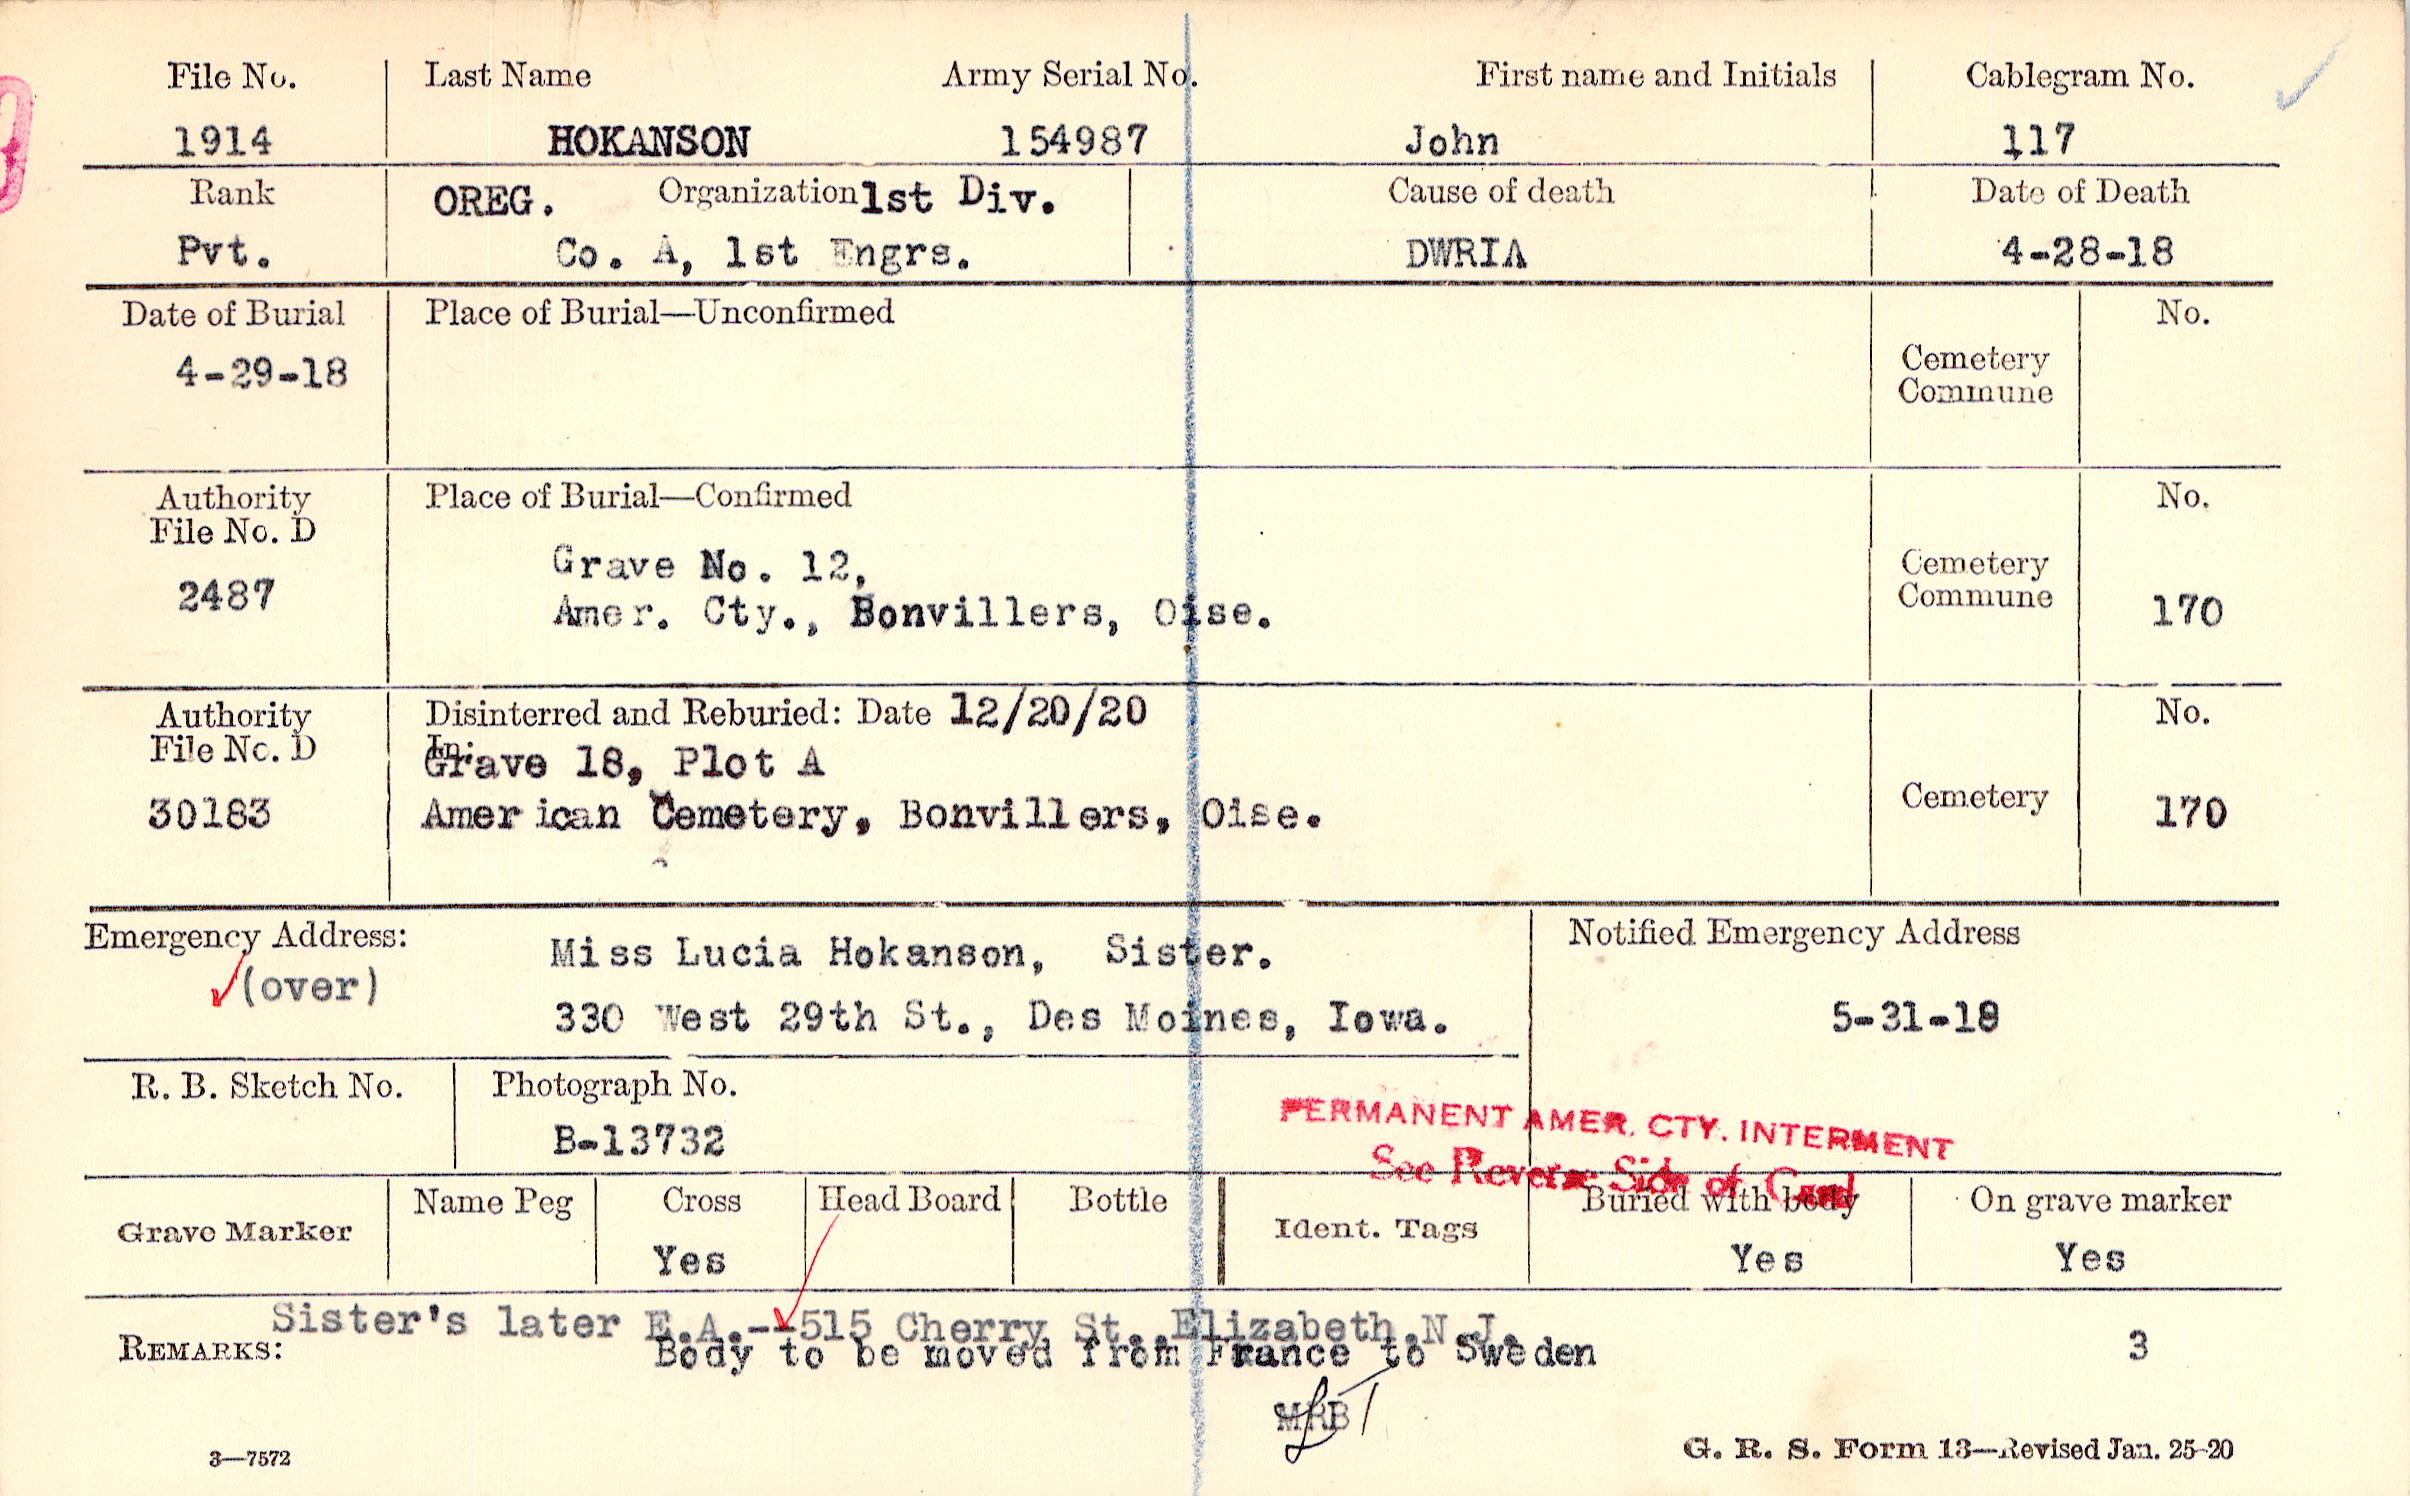 File No. Last Name Army Serial No. First name and Initials Cablegram No.
1914 HOKANSON 154987 John 117
Rank OREG. Organization 1st Div. Cause of death Date of Death
Pvt. Co. A, 1st Engrs. DWRIA 4-28-18
Date of Burial Place of Burial—Unconfirmed No.
4-29-18 Cemetery
Commune
Authority Place of Burial—Confirmed No.
File No. D
Grave No. 12, Cemetery
2487 Amer. Cty., Bonvillers, Oise. Commune 170
Authority Disinterred and Reburied: Date 12/20/20 No.
File No. D In:
Grave 18, Plot A
30183 American Cemetery, Bonvillers, Oise. Cemetery 170
Emergency Address: Miss Lucia Hokanson, Sister. Notified Emergency Address
(over) 330 West 29th St., Des Moines, Iowa. 5-31-18
R. B. Sketch No. Photograph No.
B-13732
PERMANENT AMER. CTY. INTERMENT
See Reverse Side of Card
Grave Marker Name Peg Cross Head Board Bottle Ident. Tags Buried with body On grave marker
Yes Yes Yes
Sister's later E.A.--515 Cherry St., Elizabeth, N.J.
REMARKS: Body to be moved from France to Sweden 3
MRB
3—7572 G. R. S. Form 13—Revised Jan. 25-20